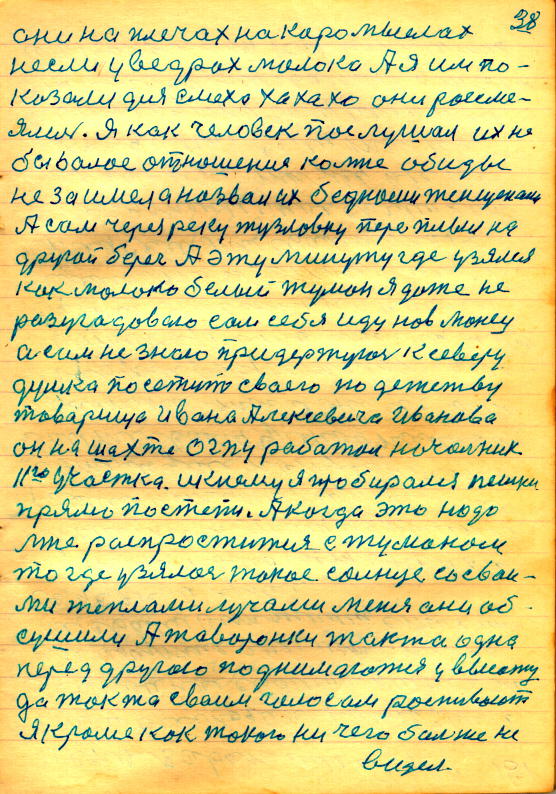 38
они на плечах на каромыслах
несли у ведрах молоко А я им по-
казали для смеха ха ха хо они россме-
ялись. Я как человек послушал их не
бывалое отношения ко мне обиды
не заимел а назвал их бедными женщинами
А сам через реку тузловку переплыл на
другой берег А эту минуту где узялся
как молоко белый туман я даже не
разугадоваю сам себя иду нов монец
а сам не знаю придержуюся к северу
думка посетить сваего по детству
товарища Ивана Алексевича Иванова
он на шахте ОГПУ работал началник
11го участка. и к нему я пробирался пешки
прямо по степи. А когда это надо
мне распроститися с туманом
то где узялося такое солнце со сваи-
ми теплами лучами меня они об-
сушили А таворонки так та одна
перед другою поднимаются у ввысоту
да так та сваим голосам роспивают
я кроме как такого ни чего болже не
видел.